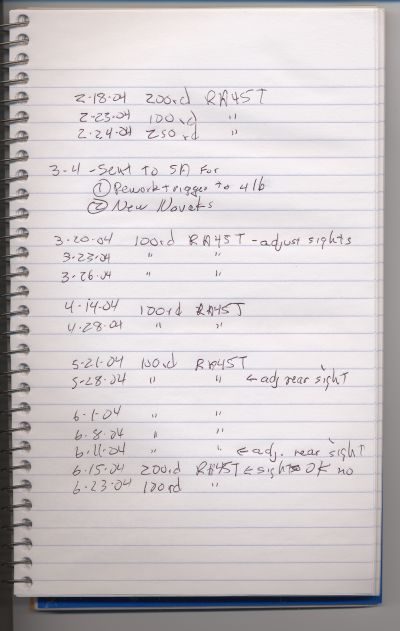 2-18-04 200rd RA45T
2-23-04 100rd "
2-24-04 250rd "
3-4 - Sent to SA for
① Rework trigger to 4 lb
② New Novaks
3-20-04 100rd RA45T - adjust sights
3-23-04 " "
3-26-04 " "
4-14-04 100rd RA45T
4-28-04 " "
5-21-04 100rd RA45T
5-28-04 " " ← adj rear sight
6-1-04 " "
6-8-04 " "
6-11-04 " " ← adj. rear sight
6-15-04 200rd RA45T ← sights OK no
6-23-04 100rd "